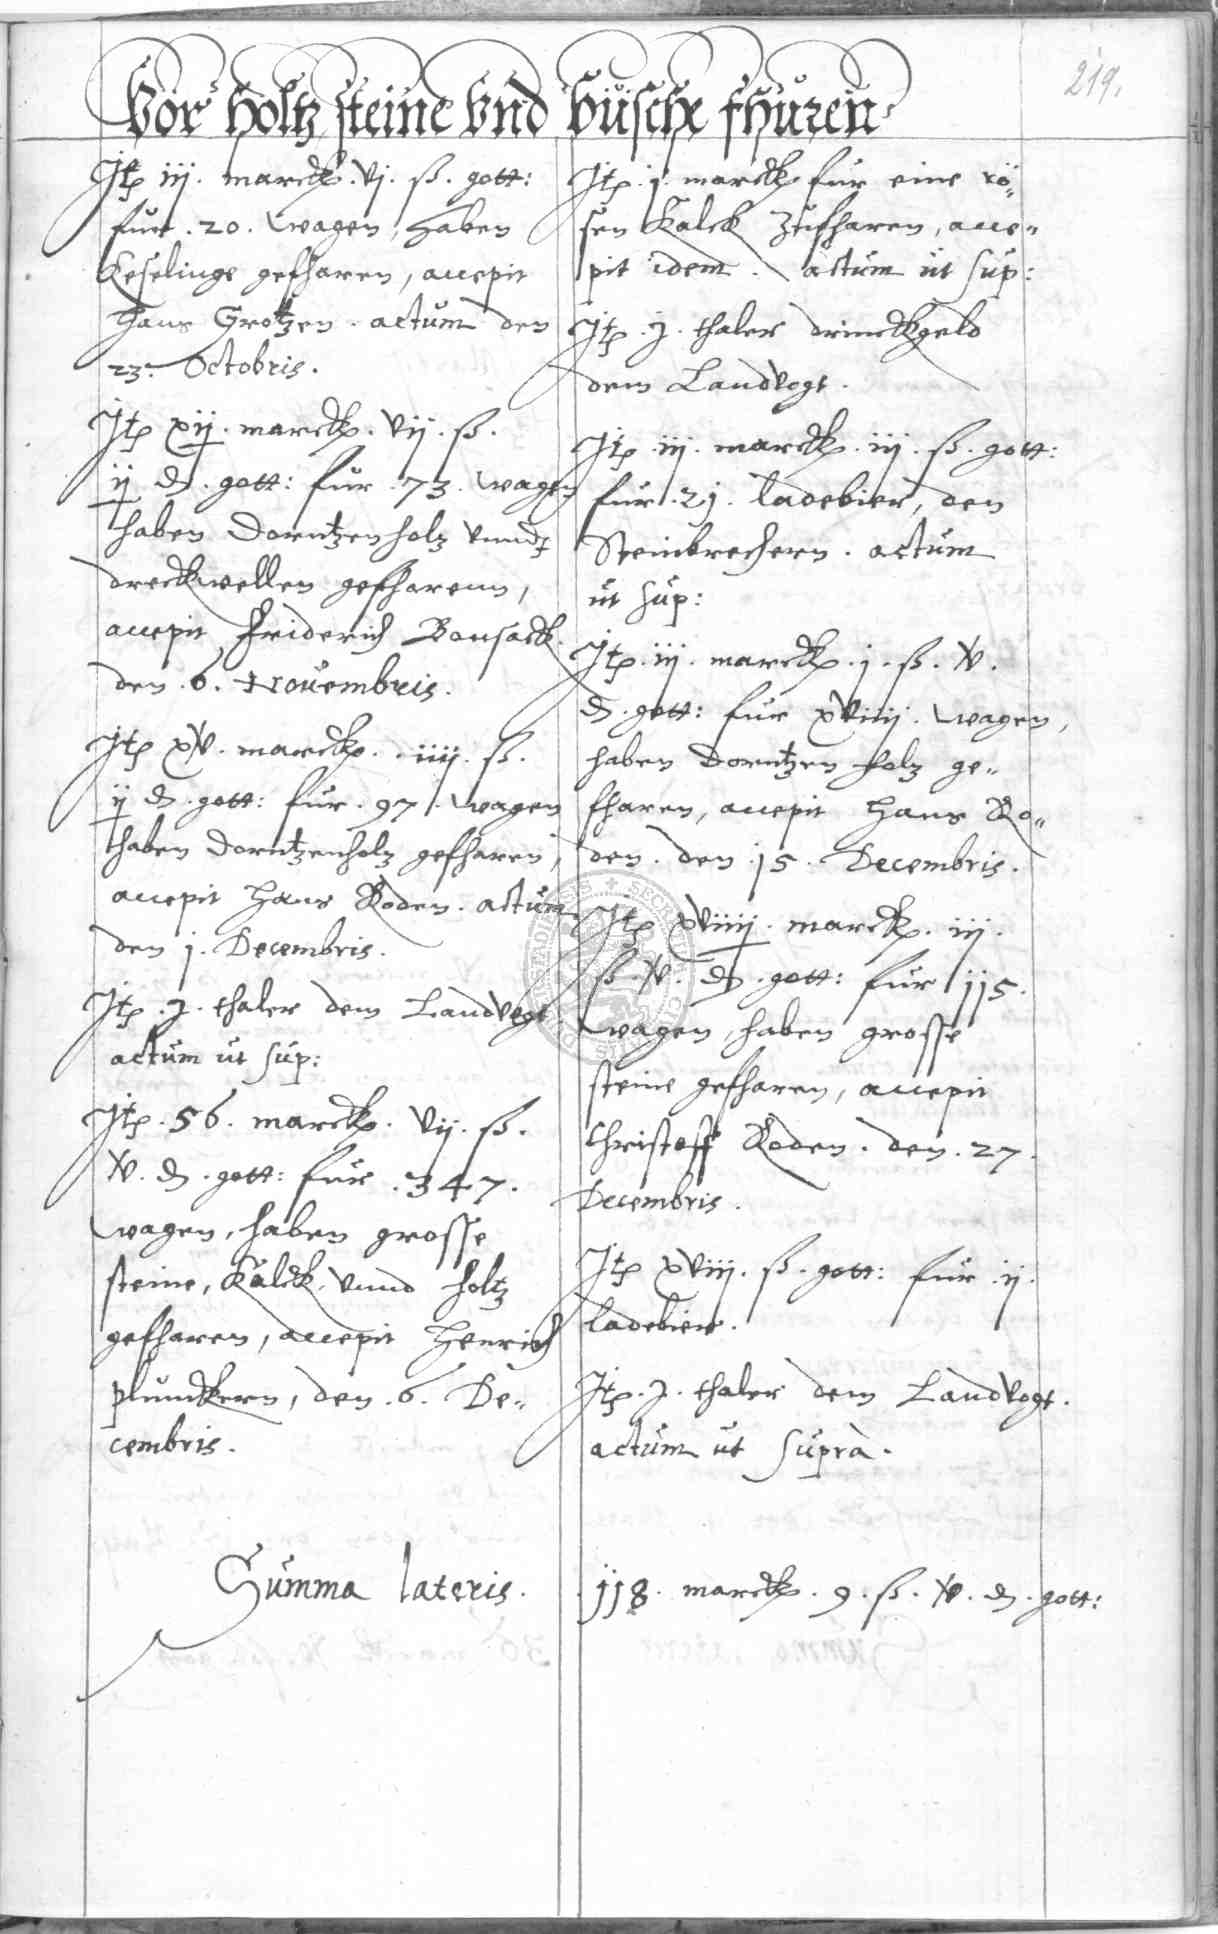 219.
Vor holtz steine Vnd Büsche fhuren
Itp iij. marck. vj. ß. gott:
fur. 20. wagen, haben
Keselinge gefharen, accepit
Hans Grotzen. actum den
23. Octobris.
Itp xij. marck. vij. ß.
ij ₰. gott: fur. 73. wagen
haben Dorntzenholz vnnd
dreckwellen gefharenn,
accepit Friderich Bonsack.
den. 6. Nouembris.
Itp xv. marck. iiij. ß.
ij ₰. gott: fur. 97. wagen
haben Dorntzenholz gefharen,
accepit Hans Roden. actum
den j. Decembris.
Itp. J. thaler dem Landvogt
actum ut sup:
Itp. 56. marck. vij. ß.
v. ₰. gott: fur. 347.
wagen, haben grosse
steine, Kalck, vnnd holtz
gefharen, accepit Henrich
Plunckern, den. 6. De„
cembris.
Itp. j. marck fur eine rö„
sen Kalck zufharen, acce„
pit idem. actum ut sup:
Itp. J. thaler drinckgeld
dem Landvogt.
Itp. iij. marck. iij. ß. gott:
fur. 21. ladebier, den
Steinbrechern. actum
ut sup:
Itp. iij. marck. j. ß. v.
₰. gott: fur xviiij. wagen,
haben Dorntzen holz ge„
fharen, accepit Hans Ro„
den. den 15. Decembris.
Itp xviiij. marck. iij.
ß. v. ₰. gott: fur 115.
wagen, haben grosse
steine gefharen, accepit
Christoff Roden. den. 27.
Decembris.
Itp xviij. ß. gott: fur ij.
ladebier.
Itp. J. thaler dem Landvogt.
actum ut suprà.
Summa lateris. 118. marck. 9. ß. v. ₰. gott: